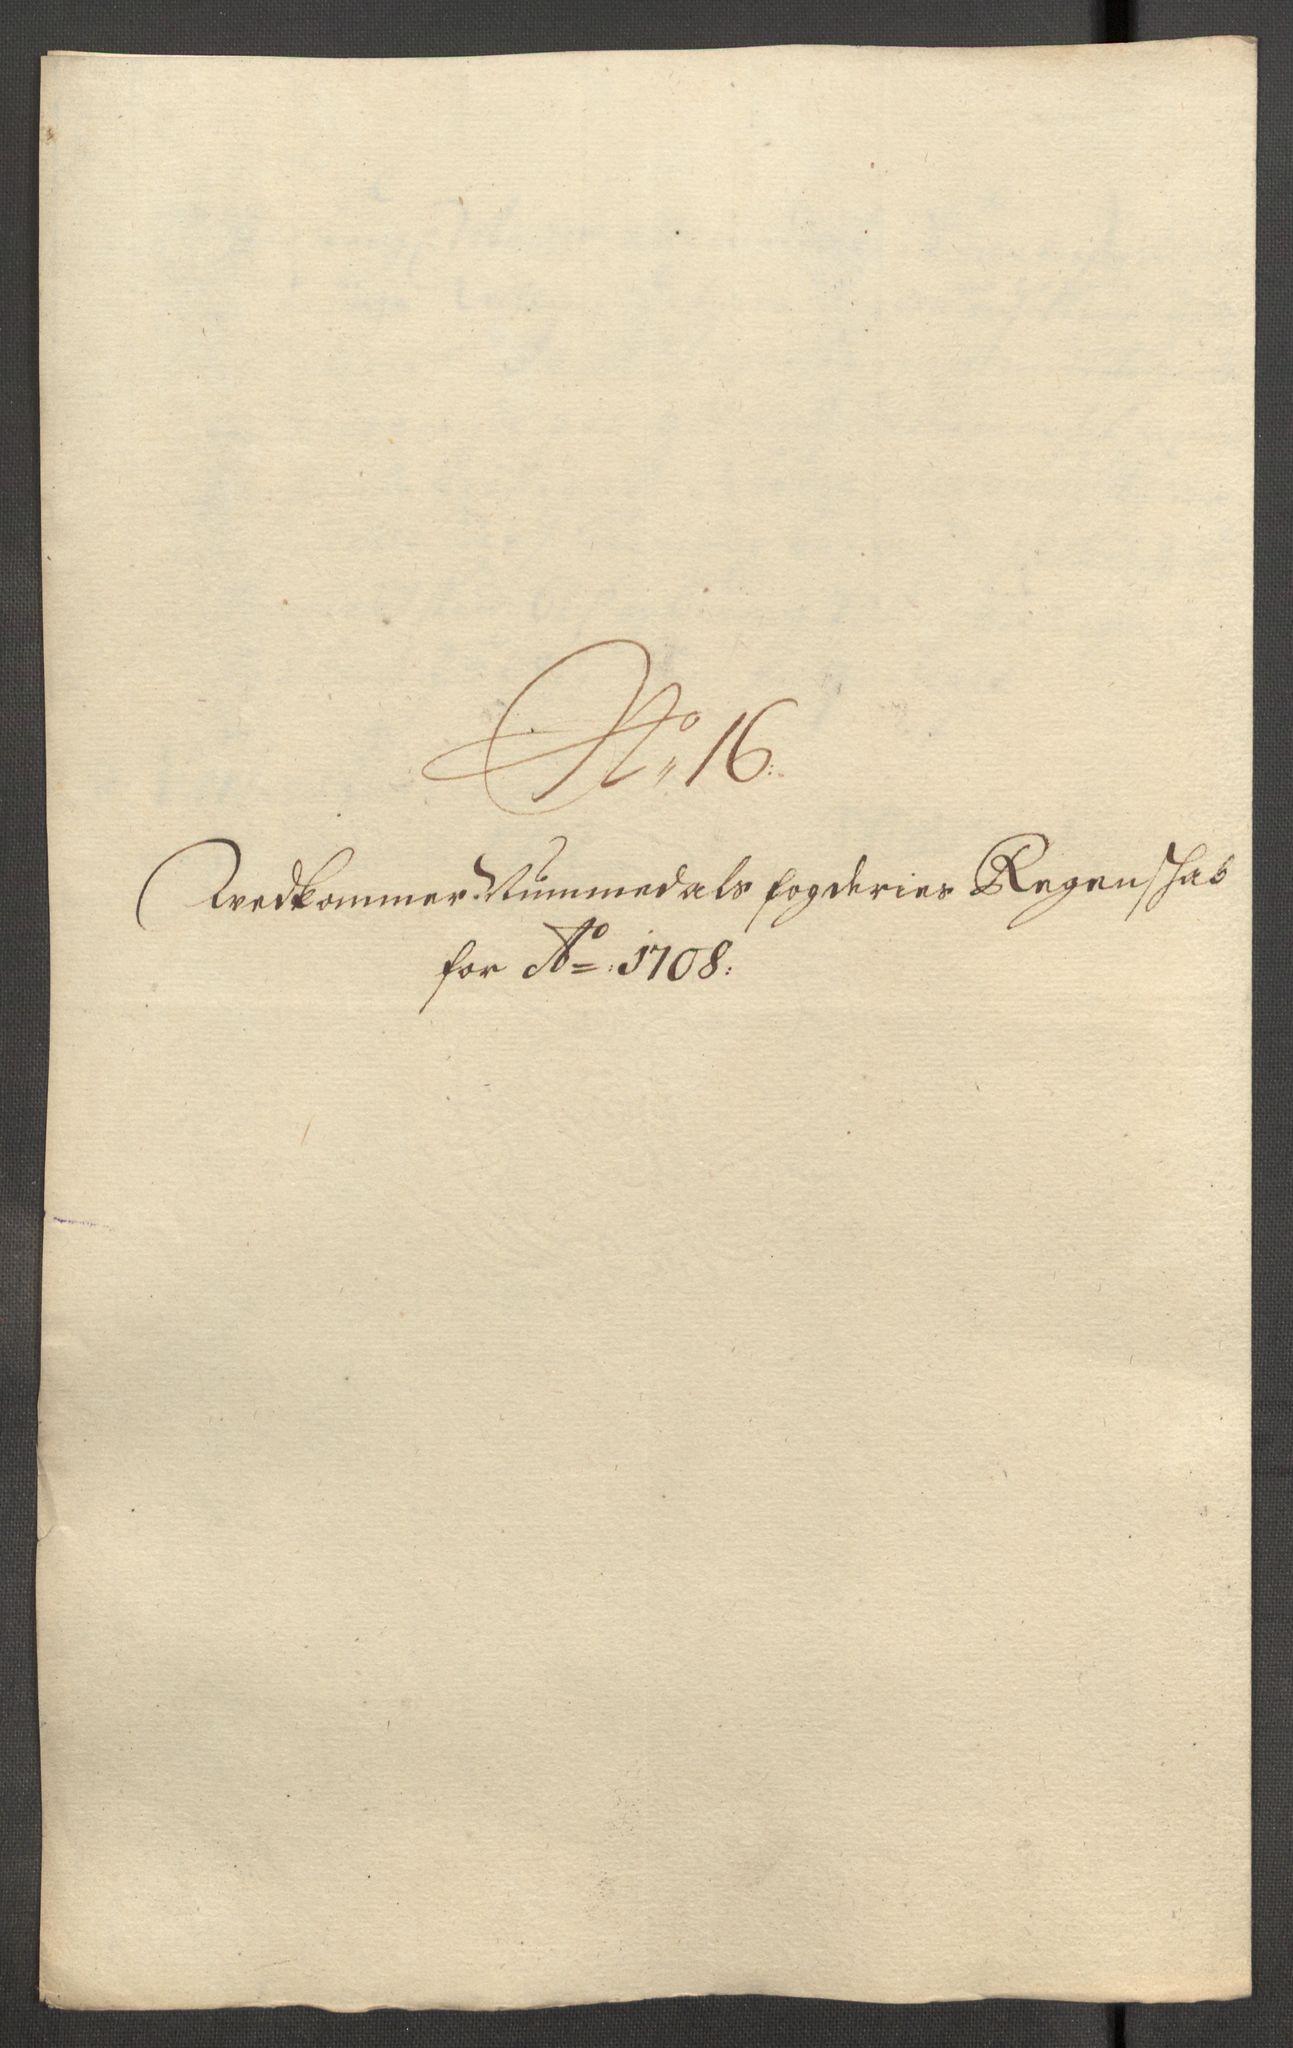 No 16:
Vedkommer Nummedals fogderies Regenskab
for Ao: 1708: